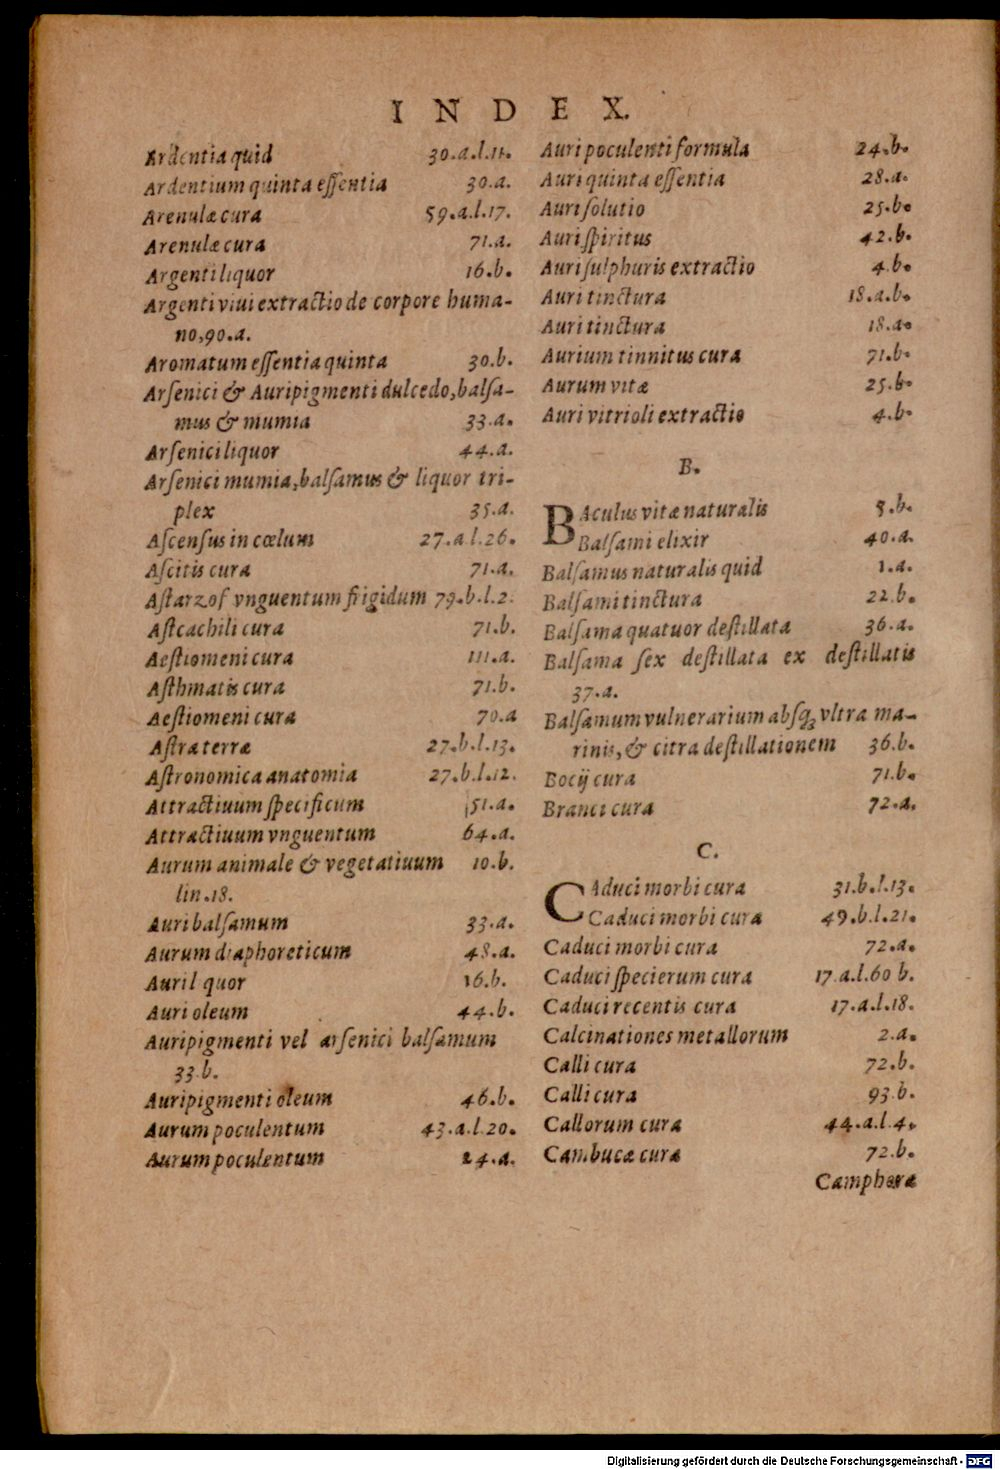 INDEX.
Ardentia quid 30.a.l.11.
Ardentium quinta eſſentia 30.a.
Arenulæ cura 59.a.l.17.
Arenulæ cura 71.a.
Argenti liquor 16.b.
Argenti viui extractio de corpore huma-
no, 90.a.
Aromatum eſſentia quinta 30.b.
Arſenici & Auripigmenti dulcedo, balſa-
mus & mumia 33.a.
Arſenici liquor 44.a.
Arſenici mumia, balſamus & liquor tri-
plex 35.a.
Aſcenſus in cœlum 27.a l.26.
Aſcitis cura 71.a.
Aſtarzof vnguentum frigidum 79.b.l.2.
Aſtcachili cura 71.b.
Aeſtiomeni cura 111.a.
Aſthmatis cura 71.b.
Aeſtiomeni cura 70.a
Aſtra terræ 27.b.l.13.
Aſtronomica anatomia 27.b.l.12.
Attractiuum ſpecificum 51.a.
Attractiuum vnguentum 64.a.
Aurum animale & vegetatiuum 10.b.
lin.18.
Auri balſamum 33.a.
Aurum diaphoreticum 48.a.
Auri l quor 16.b.
Auri oleum 44.b.
Auripigmenti vel arſenici balſamum
33.b.
Auripigmenti oleum 46.b.
Aurum poculentum 43.a.l.20.
Aurum poculentum 24.a.
Auri poculenti formula 24.b.
Auri quinta eſſentia 28.a.
Auri ſolutio 25.b.
Auri ſpiritus 42.b.
Auri ſulphuris extractio 4.b.
Auri tinctura 18.a.b.
Auri tinctura 18.a.
Aurium tinnitus cura 71.b.
Aurum vitæ 25.b.
Auri vitrioli extractio 4.b.
B.
BAculus vitæ naturalis 5.b.
Balſami elixir 40.a.
Balſamus naturalis quid 1.a.
Balſami tinctura 22.b.
Balſama quatuor deſtillata 36.a.
Balſama ſex deſtillata ex deſtillatis
37.a.
Balſamum vulnerarium abſqꝫ vltra ma-
rinis, & citra deſtillationem 36.b.
Bocij cura 71.b.
Branci cura 72.a.
C.
CAduci morbi cura 31.b.l.13.
Caduci morbi cura 49.b.l.21.
Caduci morbi cura 72.a.
Caduci ſpecierum cura 17.a.l.60 b.
Caduci recentis cura 17.a.l.18.
Calcinationes metallorum 2.a.
Calli cura 72.b.
Calli cura 93.b.
Callorum cura 44.a.l.4.
Cambucæ cura 72.b.
Camphora
Digitalisierung gefördert durch die Deutsche Forschungsgemeinschaft - DFG